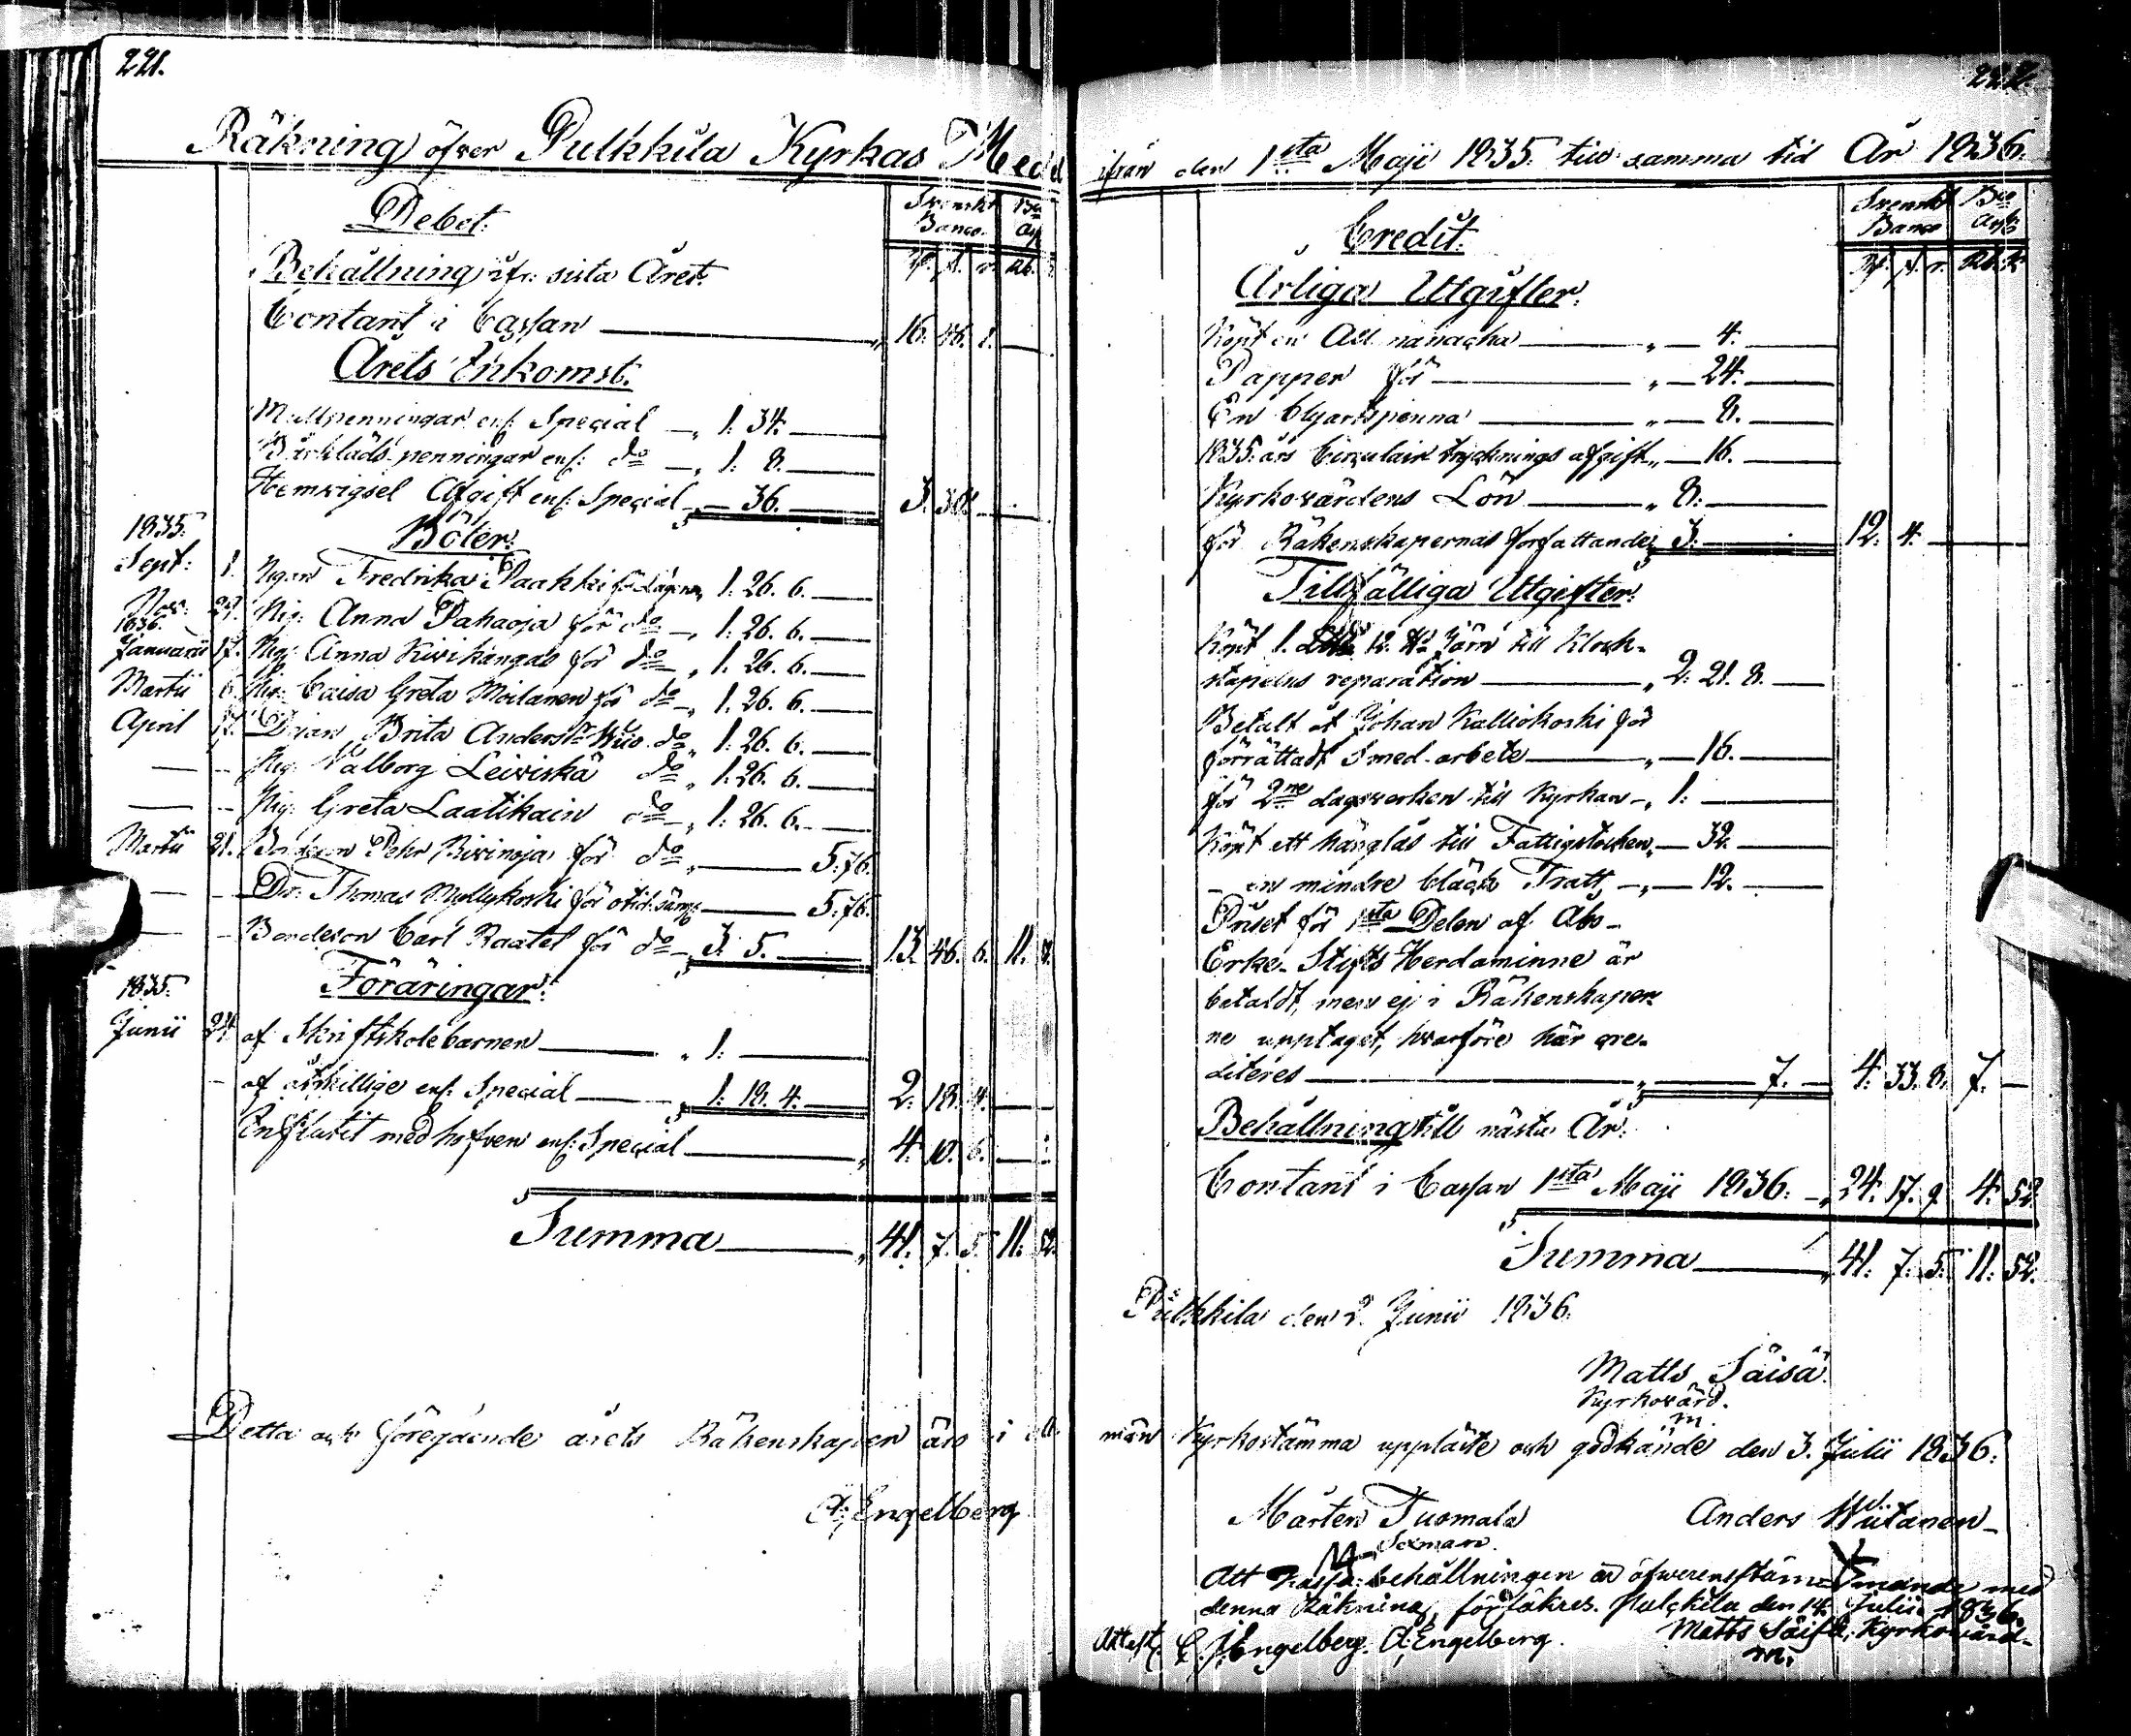 221.
Räkning öfver Pulkkila Kyrkas Med
Debet.
Svenskt Banco.
Behållning ifr: sista Året.
Contant i Cassan „ 16. 46. 1. —
Årets Inkomst.
Mullpenningar enl: Special — „ 1. 34. —
Bårkläds penningar enl: do — „ 1. 8. —
Hemvigsel Afgift enl: Special „ — 36. — 3. 30. —
1835. Böter.
Sept: 1. Pigan Fredrika Paakki för Lägersm. „ 1. 26. 6. —
Nov: 29. Pig: Anna Pahaoja för do — „ 1. 26. 6. —
1836.
Januarii 17. Pig: Anna Kivikangas för do — „ 1. 26. 6. —
Martii 6. Pig: Caisa Greta Moilanen för do — „ 1. 26. 6. —
April 17. Brita Andersdr do „ 1. 26. 6. —
— - Pig: Valborg Leiviskä do „ 1. 26. 6. —
— - Pig: Greta Laatikain do — „ 1. 26. 6. —
Martii 21. Bondeson Pehr för do „ — 5. 76.
— - Dr. Thomas Myllykoski för — 5. 76.
— - Bondeson Carl Raatel för do — „ 3. 5. — 13. 46. 6. 11.
1835. Föräringar.
Junii 24. af Skriftskolebarnen — „ 1. —
- af åtskillige enl: Special — „ 1. 18. 4. — 2. 18. 4. —
Influtit med hofven enl: Special — „ 4. 10. 6. —
Summa — „ 41. 7. 5. 11. 52.
Detta och föregående årets Räkenskaper äro i
A: Engelberg
222.
ifrån den 1sta Maji 1835 till samma tid År 1836.
Credit.
Svenskt Banco
Årliga Utgifter.
Köpt en Allmanacka — „ — 4. —
Papper för — „ — 24. —
En — „ — 8. —
1835: års Circulair trycknings afgift „ — 16. —
Kyrkovärdens Lön — „ 8. —
för Räkenskapernas författande „ 3. — 12. 4. —
Tillfälliga Utgifter.
Köpt 1. 12. Järn till Klock-
stapelns reparation — „ 2. 21. 8. —
Betalt åt Johan Kalliokoski för
förrättadt Smed-arbete — „ — 16. —
för 2ne dagsverken till Kyrkan — „ 1. —
Köpt ett hänglås till Fattigstocken „ — 32. —
— en mindre bläck Tratt, — „ — 12. —
Priset för 1sta Delen af Åbo-
Erke-Stifts Herdaminne är
betaldt, men ej i Räkenskaper-
ne upptaget, hvarföre här cre-
diteres — „ — 7. — 4. 33. 8. 7. —
Behållning till nästa År.
Contant i Cassan 1sta Maji 1836. — „ 24. 17. 9. 4. 52.
Summa — „ 41. 7. 5. 11. 52.
Pulkkila den 2. Junii 1836.
Matts Säisä.
Kyrkovärd.
m.
män Kyrkostämma uppläste och godkände den 3. Julii 1836.
Mårten Tuomala Anders Wiitanen
Sexman.
Att kassa behållningen är öfverensstämmande med
denna Räkning, försäkres. Pulckila den 14. Julii 1836.
Attest: C. J. Engelberg. A: Engelberg. Matts Säisä, Kyrkovärd.
m.